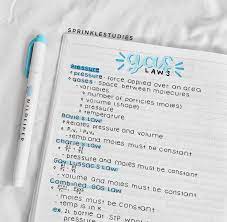 SPRINKLESTUDIES
gas
LAWS
Pressure
• pressure - force applied over an area
• gases - space between molecules
• variables
• number of particles (moles)
• volume (shape)
• temperature
• pressure
Boyle's Law
• relates pressure and volume
• temp and moles must be constant
Charles's Law
• pressure and moles must be constant
Gay Lussac's Law
• volume and moles must be constant
Combined Gas Law
• moles must be constant
• temp is in K